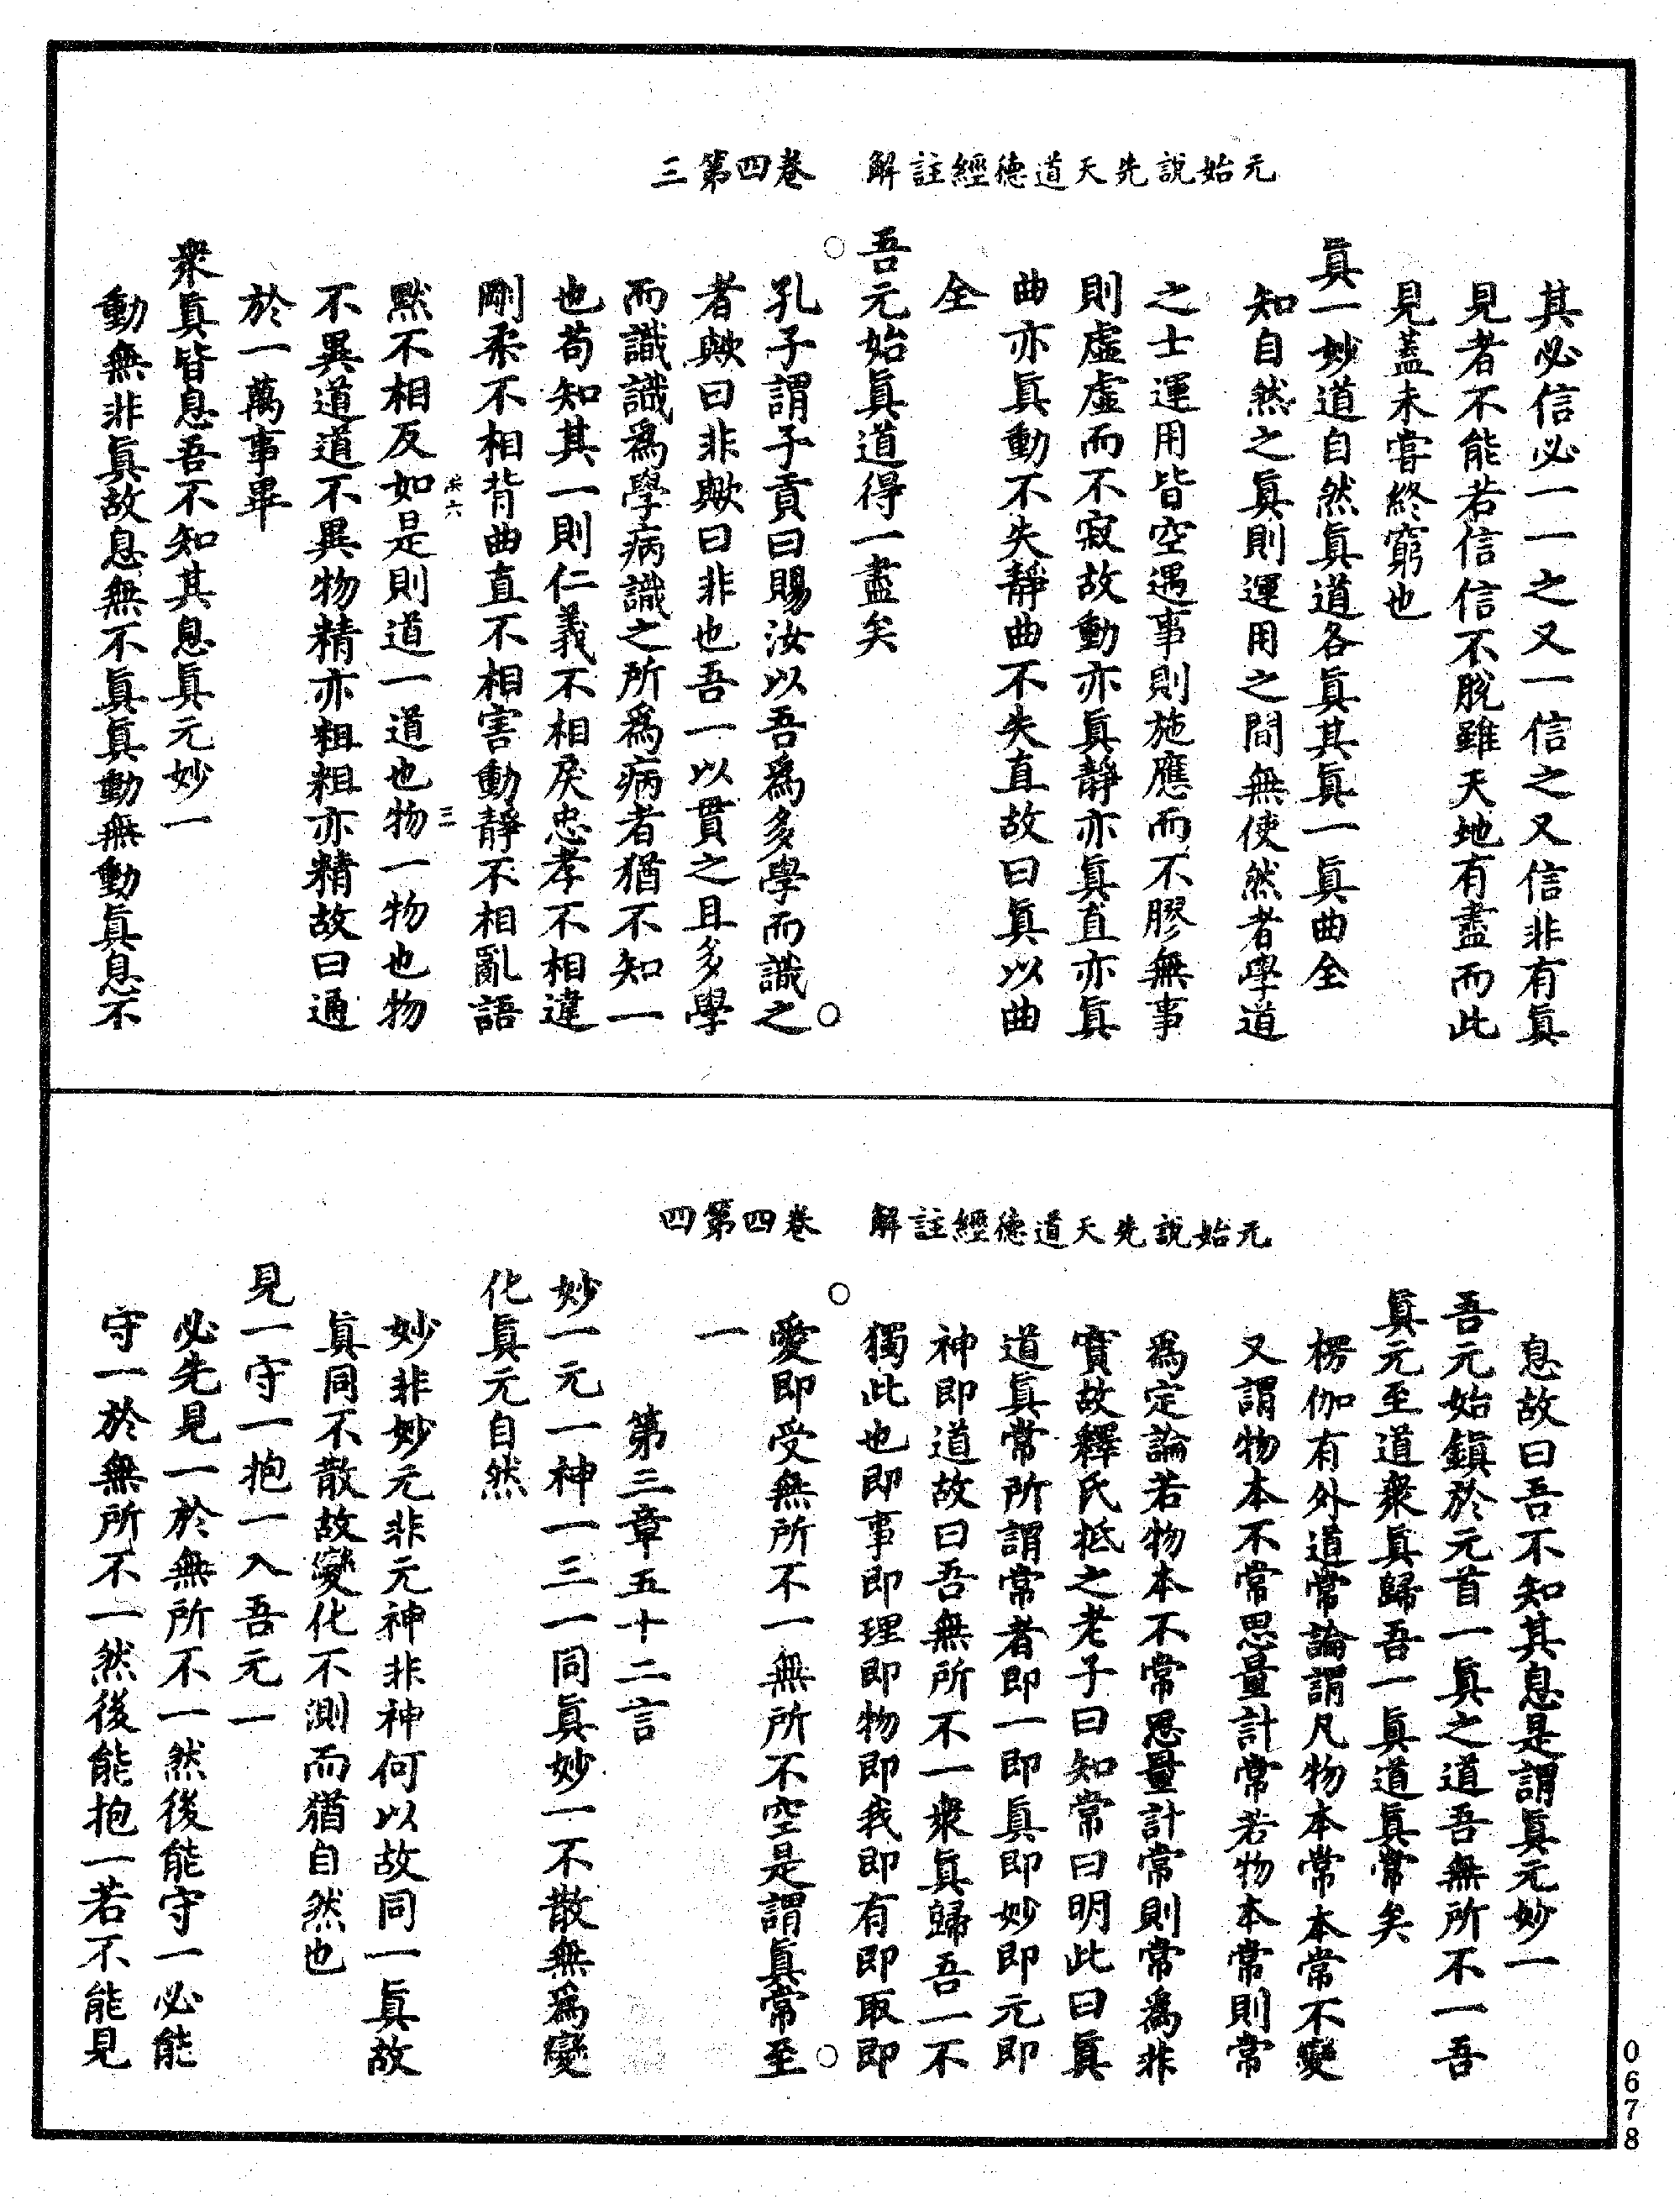 元始說先天道德經註解　卷四第三
其必信必一一之又一信之又信非有眞
見者不能若信信不脫雖天地有盡而此
見蓋未嘗終窮也
眞一妙道自然眞道各眞其眞一眞曲全
知自然之眞則運用之間無使然者學道
之士運用皆空遇事則施應而不膠無事
則虛虛而不寂故動亦眞靜亦眞直亦眞
曲亦眞動不失靜曲不失直故曰眞以曲
全
吾元始眞道得一盡矣
孔子謂子貢曰賜汝以吾爲多學而識之
者歟曰非歟曰非也吾一以貫之且多學
而識識爲學病識之所爲病者猶不知一
也苟知其一則仁義不相戾忠孝不相違
剛柔不相背曲直不相害動靜不相亂語
默不相反如是則道一道也物一物也物
不異道道不異物精亦粗粗亦精故曰通
於一萬事畢
衆眞皆息吾不知其息眞元妙一
動無非眞故息無不眞眞動無動眞息不
元始說先天道德經註解　卷四第四
息故曰吾不知其息是謂眞元妙一
吾元始鎮於元首一眞之道吾無所不一吾
眞元至道衆眞歸吾一眞道眞常矣
楞伽有外道常論謂凡物本常本常不變
又謂物本不常思量計常若物本常則常
爲定論若物本不常思量計常則常爲非
實故釋氏柢之老子曰知常曰明此曰眞
道眞常所謂常者即一即眞即妙即元即
神即道故曰吾無所不一衆眞歸吾一不
獨此也即事即理即物即我即有即取即
愛即受無所不一無所不空是謂眞常至
一
第三章五十二言
妙一元一神一三一同眞妙一不散無爲變
化眞元自然
妙非妙元非元神非神何以故同一眞故
眞同不散故變化不測而猶自然也
見一守一抱一入吾元一
必先見一於無所不一然後能守一必能
守一於無所不一然後能抱一若不能見
0678